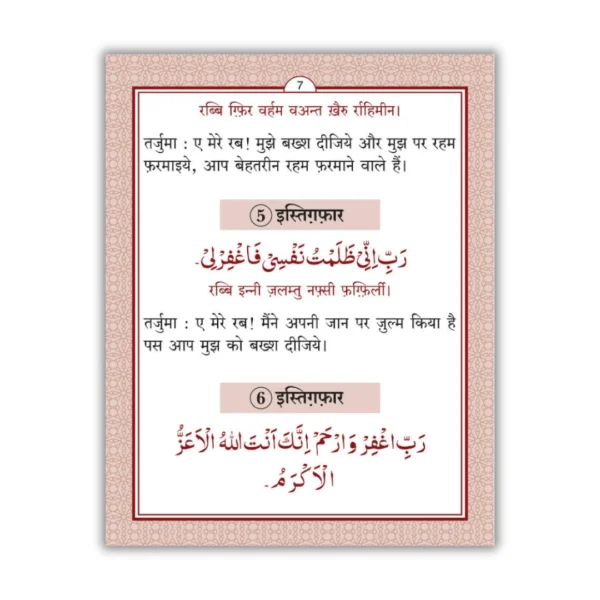 7
रब्बि ग़्फ़िर वर्हम वअन्त ख़ैरु र्राहिमीन।
तर्जुमा : ए मेरे रब! मुझे बख्श दीजिये और मुझ पर रहम
फ़रमाइये, आप बेहतरीन रहम फ़रमाने वाले हैं।
5 इस्तिग़फ़ार
رَبِّ اِنِّیْ ظَلَمْتُ نَفْسِیْ فَاغْفِرْلِیْ۔
रब्बि इन्नी ज़लम्तु नफ़्सी फ़ग़्फ़िर्ली।
तर्जुमा : ए मेरे रब! मैंने अपनी जान पर ज़ुल्म किया है
पस आप मुझ को बख्श दीजिये।
6 इस्तिग़फ़ार
رَبِّ اغْفِرْ وَارْحَمْ اِنَّكَ اَنْتَ اللهُ الْاَعَزُّ
الْاَكْرَمُ۔